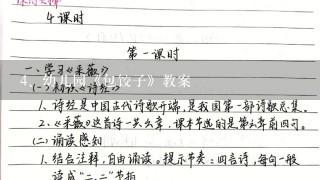 4课时
第一课时
一、学习《采薇》
4、幼儿园《包饺子》教案
(一)初识《诗经》
1、诗经是中国古代诗歌开端,是我国第一部诗歌总集。
2、《采薇》这首诗一共六章,课本节选的是第六章前四句。
(二)诵读感知
1、结合注释,自由诵读。提示节奏:四言诗,每句一般
读成“二、二”节拍